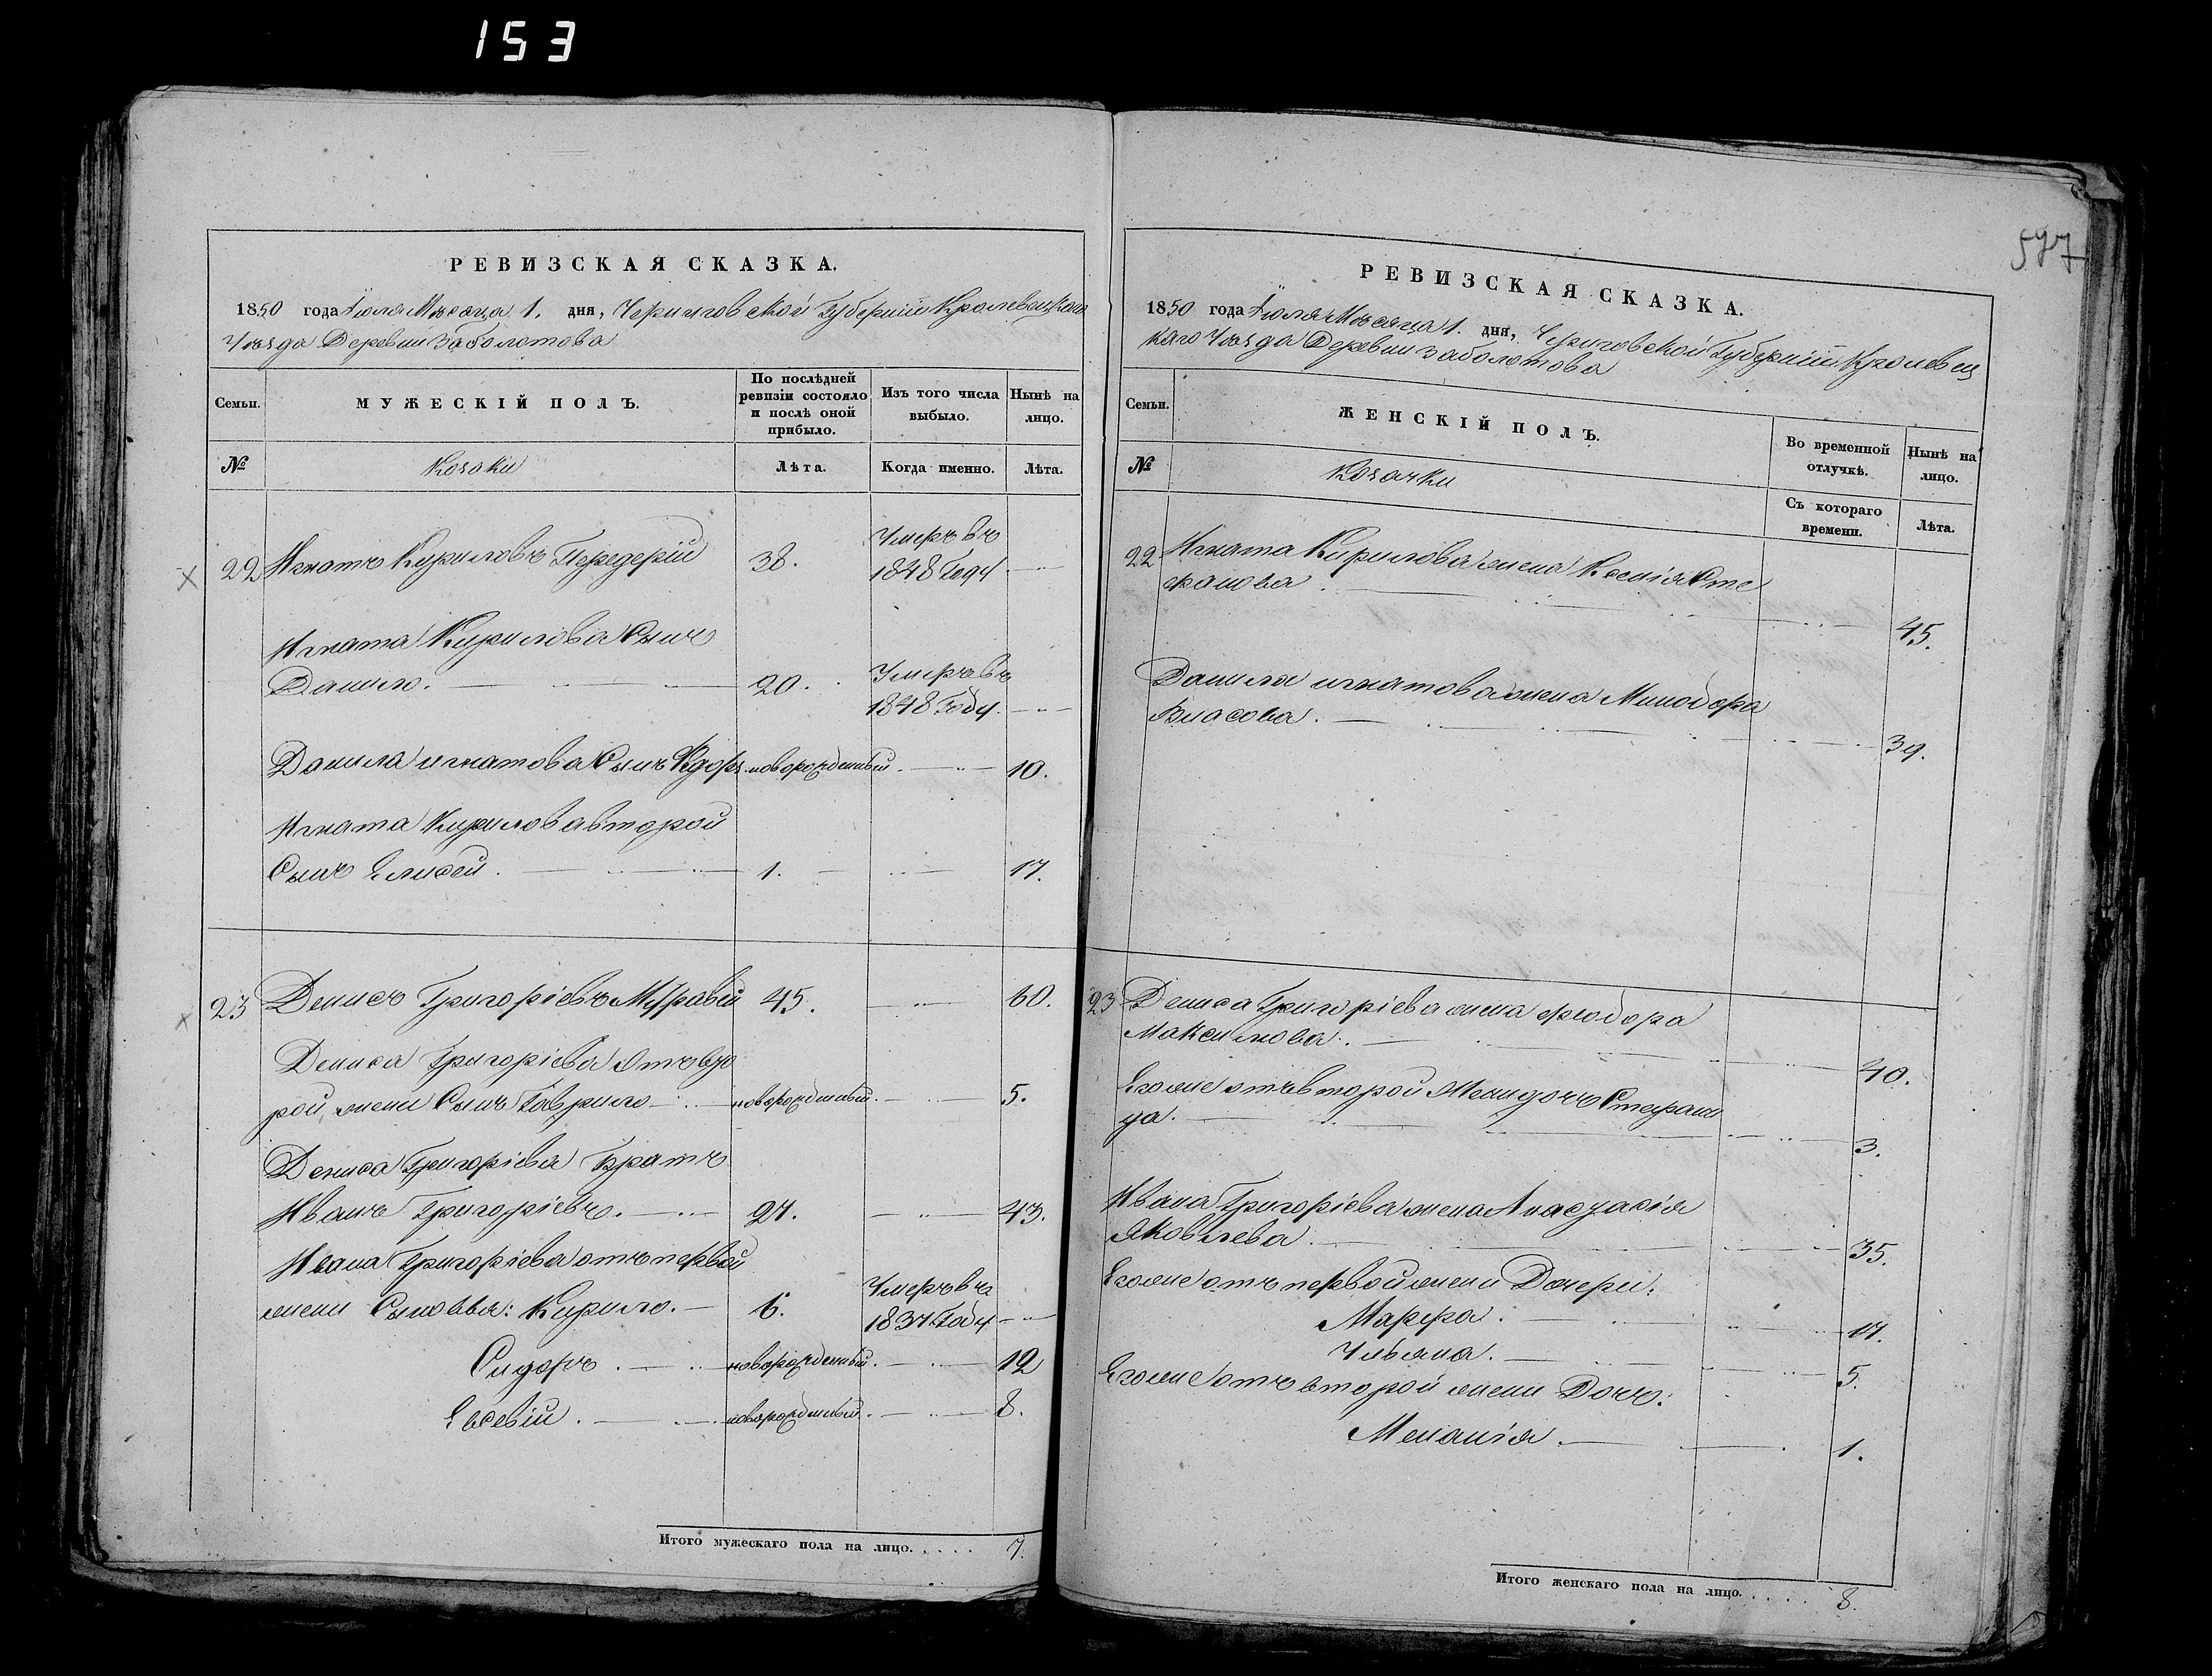 153
597
РЕВИЗСКАЯ СКАЗКА.
1850 года Іюля Мѣсяца 1. дня, Черниговской Губерніи Кролевецкаго
Уѣзда Деревни Заболотова
Семьи.
МУЖЕСКІЙ ПОЛЪ.
По послѣдней
ревизіи состояло
и послѣ оной
прибыло.
Изъ того числа
выбыло.
Нынѣ на
лицо.
№
Козаки
Лѣта.
Когда именно.
Лѣта.
22 Игнатъ Кириловъ Передерій 38. Умеръ въ
1848 Году
Игната Кирилова Сынъ
Данило. 20. Умеръ въ
1848 Году.
Данила игнатова Сынъ новорожденный. 10.
Игната Кирилова второй
Сынъ Елисей. 1. 17.
23 Денисъ Григоріевъ Муравей 45. 60.
Дениса Григоріева отъ вто
рой жени Сынъ Гаврило новорожденный. 5.
Дениса Григоріева Братъ
Иванъ Григоріевъ. 27. 43.
Ивана Григоріева отъ первой
жени Сыновья: Кирило. 6. Умеръ въ
1837 Году
Сидоръ. новорожденный. 12
Евсевій. новорожденный. 8.
Итого мужескаго пола на лицо..... 7.
РЕВИЗСКАЯ СКАЗКА.
1850 года Іюля Мѣсяца 1. дня, Черниговской Губерніи Кролевец
каго Уѣзда Деревни Заболотова
Семьи.
ЖЕНСКІЙ ПОЛЪ.
Во временной
отлучкѣ.
Нынѣ на
лицо.
№
Козачки
Съ котораго
времени.
Лѣта.
22 Игната Кирилова жена Ксенія Сте
фанова. 45.
Данила игнатова жена Минодора
Власова. 39.
23 Дениса Григоріева жена Феодора
Максимова. 40.
Егоже отъ второй Жени дочь Стефани
да. 3.
Ивана Григоріева жена Анастасія
Яковлева. 35.
Егоже отъ первой жени Дочери:
Марфа. 17.
Ульяна. 5.
Егоже отъ второй жени Дочь:
Меланія. 1.
Итого женскаго пола на лицо..... 8.